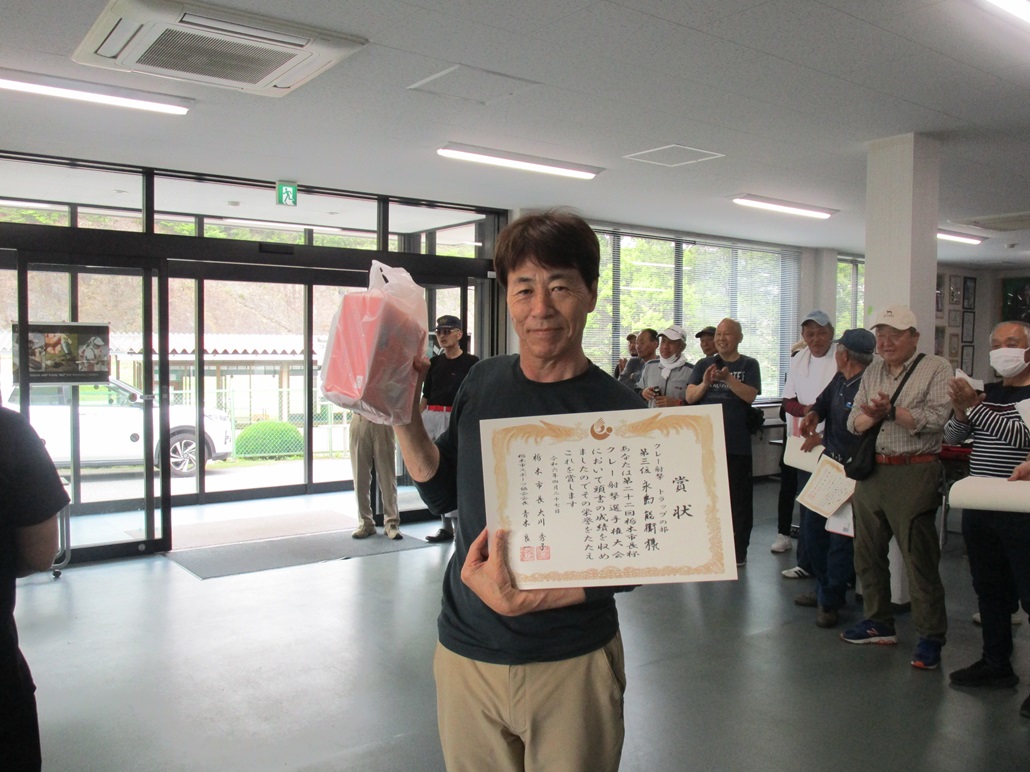 賞状
クレー射撃 トラップの部
第三位 永島能衛様
あなたは第二十二回栃木市長杯
クレー射撃選手権大会
において頭書の成績を収め
ましたのでその栄誉をたたえ
これを賞します
令和六年四月二十七日
栃木市長 大川秀子
栃木市スポーツ協会会長 青木良一